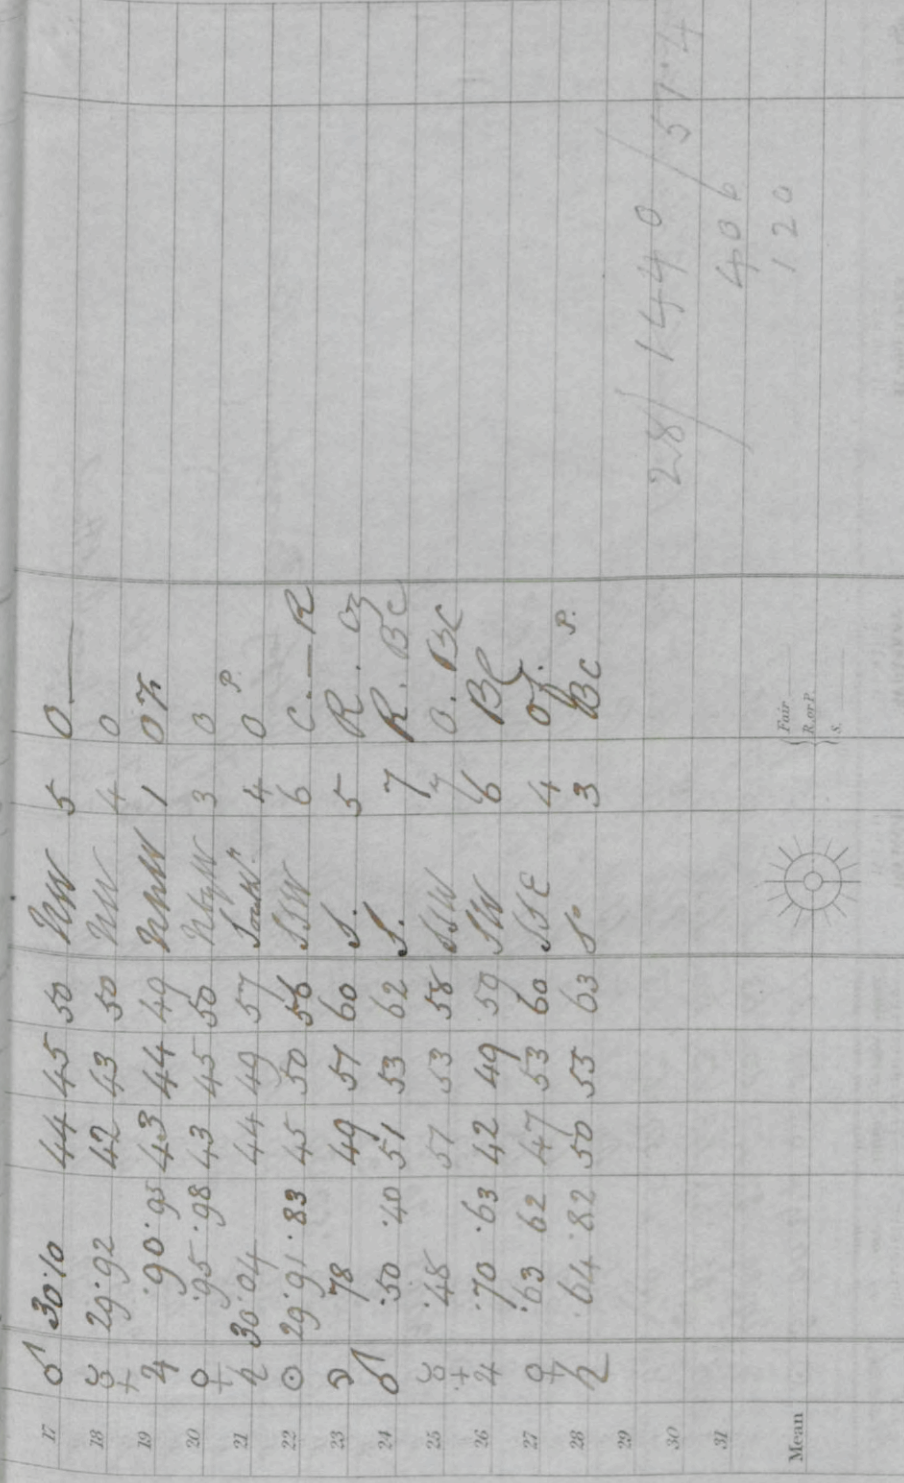 17 ♂ 30·10 44 45 50 NW 5 O —
18 ☿ 29·92 42 43 50 NW 4 O
19 ♃ ·90 ·95 43 44 49 NNW 1
20 ♀ ·95 ·98 43 45 50 NbyW 3 O
21 ♄ 30·04 44 49 57 4 O P.
22 ☉ 29·91 ·83 45 50 56 SSW 6 C. — R
23 ☽ 78 49 57 60 S. 5 R.
24 ♂ ·50 ·40 51 53 62 S. 7 R. BC
25 ☿ ·48 53 58 SSW O. BC
26 ♃ ·70 ·63 42 49 59 SW 6 BC
27 ♀ ·63 62 47 53 60 SSE 4
28 ♄ ·64 ·82 50 55 63 S. 3 BC P.
29
30
31
28/1440/51·4
406
120
Mean
Fair
R. or P.
S.